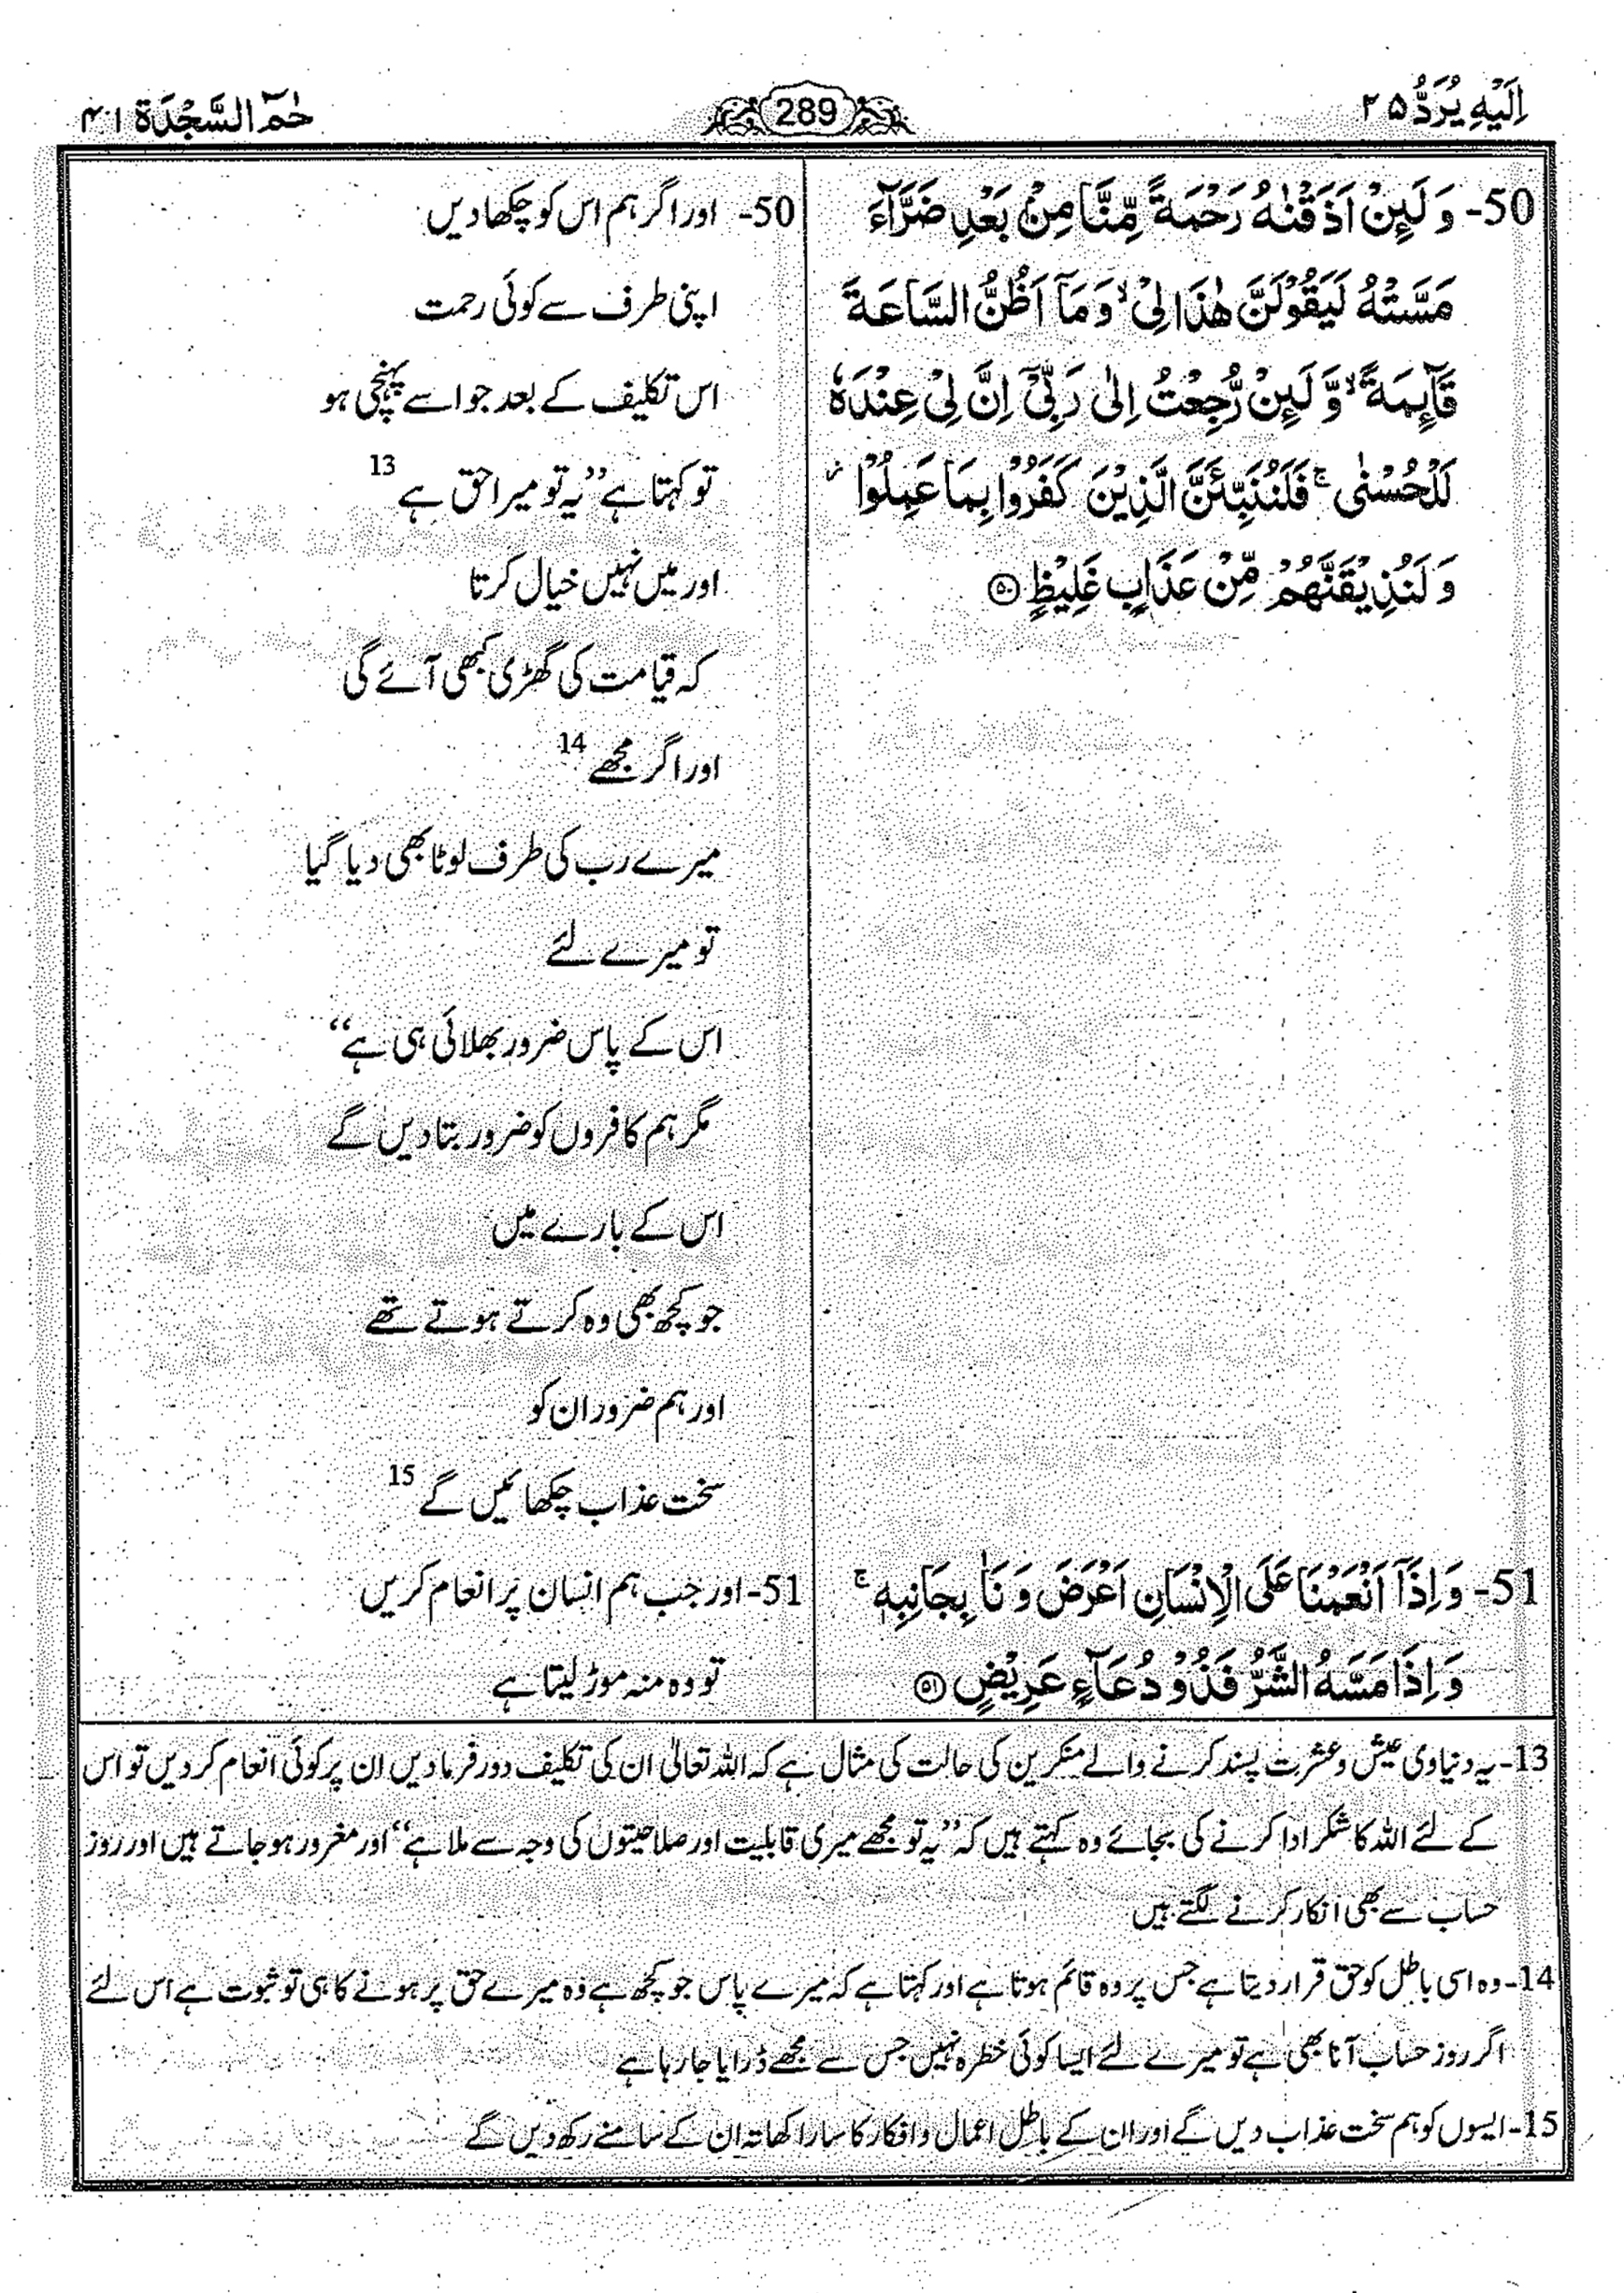 اِلَيْهِ يُرَدُّ ۲۵
289
حٰمٓ السَّجْدَة ۴۱
50- وَ لَئِنْ اَذَقْنٰهُ رَحْمَةً مِّنَّا مِنْۢ بَعْدِ ضَرَّآءَ
مَسَّتْهُ لَيَقُوْلَنَّ هٰذَا لِيْ ۙ وَ مَاۤ اَظُنُّ السَّاعَةَ
قَآىِٕمَةً ۙ وَّ لَئِنْ رُّجِعْتُ اِلٰى رَبِّيْۤ اِنَّ لِيْ عِنْدَهٗ
لَلْحُسْنٰى ۚ فَلَنُنَبِّئَنَّ الَّذِيْنَ كَفَرُوْا بِمَا عَمِلُوْا ۡ
وَ لَنُذِيْقَنَّهُمْ مِّنْ عَذَابٍ غَلِيْظٍ ۝۵۰
50- اور اگر ہم اس کو چکھا دیں
اپنی طرف سے کوئی رحمت
اس تکلیف کے بعد جو اسے پہنچی ہو
تو کہتا ہے ’’یہ تو میرا حق ہے 13
اور میں نہیں خیال کرتا
کہ قیامت کی گھڑی کبھی آئے گی
اور اگر مجھے 14
میرے رب کی طرف لوٹا بھی دیا گیا
تو میرے لئے
اس کے پاس ضرور بھلائی ہی ہے‘‘
مگر ہم کافروں کو ضرور بتا دیں گے
اس کے بارے میں
جو کچھ بھی وہ کرتے ہوتے تھے
اور ہم ضرور ان کو
سخت عذاب چکھائیں گے 15
51- وَ اِذَاۤ اَنْعَمْنَا عَلَى الْاِنْسَانِ اَعْرَضَ وَ نَاٰ بِجَانِبِهٖ ۚ
وَ اِذَا مَسَّهُ الشَّرُّ فَذُوْ دُعَآءٍ عَرِيْضٍ ۝۵۱
51- اور جب ہم انسان پر انعام کریں
تو وہ منہ موڑ لیتا ہے
13- یہ دنیاوی عیش و عشرت پسند کرنے والے منکرین کی حالت کی مثال ہے کہ اللہ تعالیٰ ان کی تکلیف دور فرما دیں ان پر کوئی انعام کر دیں تو اس
کے لئے اللہ کا شکر ادا کرنے کی بجائے وہ کہتے ہیں کہ ’’یہ تو مجھے میری قابلیت اور صلاحیتوں کی وجہ سے ملا ہے‘‘ اور مغرور ہو جاتے ہیں اور روز
حساب سے بھی انکار کرنے لگتے ہیں
14- وہ اسی باطل کو حق قرار دیتا ہے جس پر وہ قائم ہوتا ہے اور کہتا ہے کہ میرے پاس جو کچھ ہے وہ میرے حق پر ہونے کا ہی تو ثبوت ہے اس لئے
اگر روز حساب آنا بھی ہے تو میرے لئے ایسا کوئی خطرہ نہیں جس سے مجھے ڈرایا جا رہا ہے
15- ایسوں کو ہم سخت عذاب دیں گے اور ان کے باطل اعمال و افکار کا سارا کھاتہ ان کے سامنے رکھ دیں گے